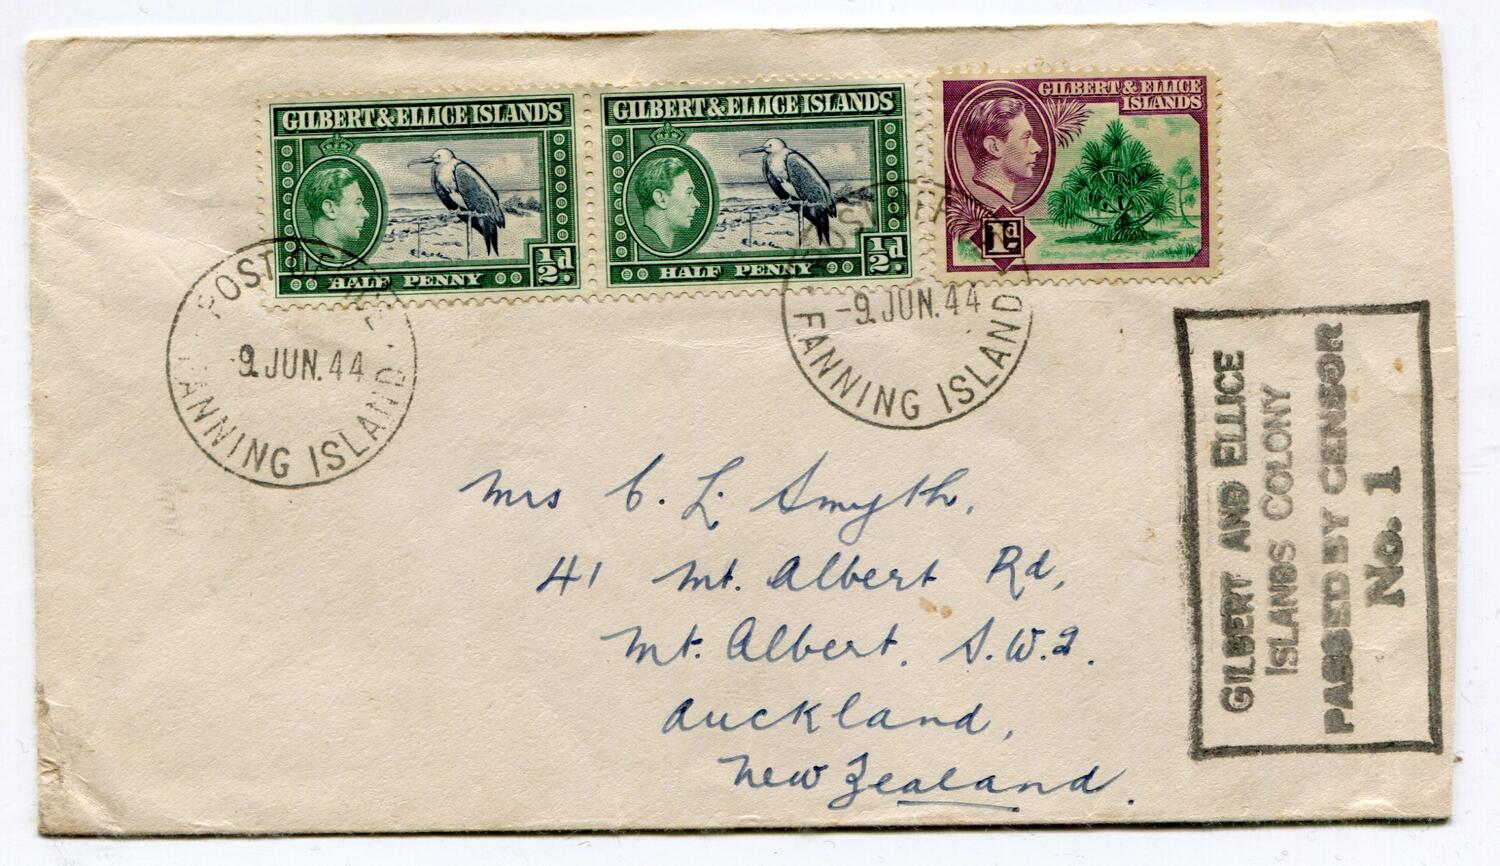 GILBERT & ELLICE ISLANDS
HALF PENNY
½d.
GILBERT & ELLICE ISLANDS
HALF PENNY
½d.
GILBERT & ELLICE
ISLANDS
1d
POST OFFICE
9 JUN.44
FANNING ISLAND
POST OFFICE
-9 JUN.44
FANNING ISLAND
GILBERT AND ELLICE
ISLANDS COLONY
PASSED BY CENSOR
No. 1
Mrs C. L. Smyth,
41 Mt. Albert Rd,
Mt. Albert. S.W.2.
Auckland,
New Zealand.